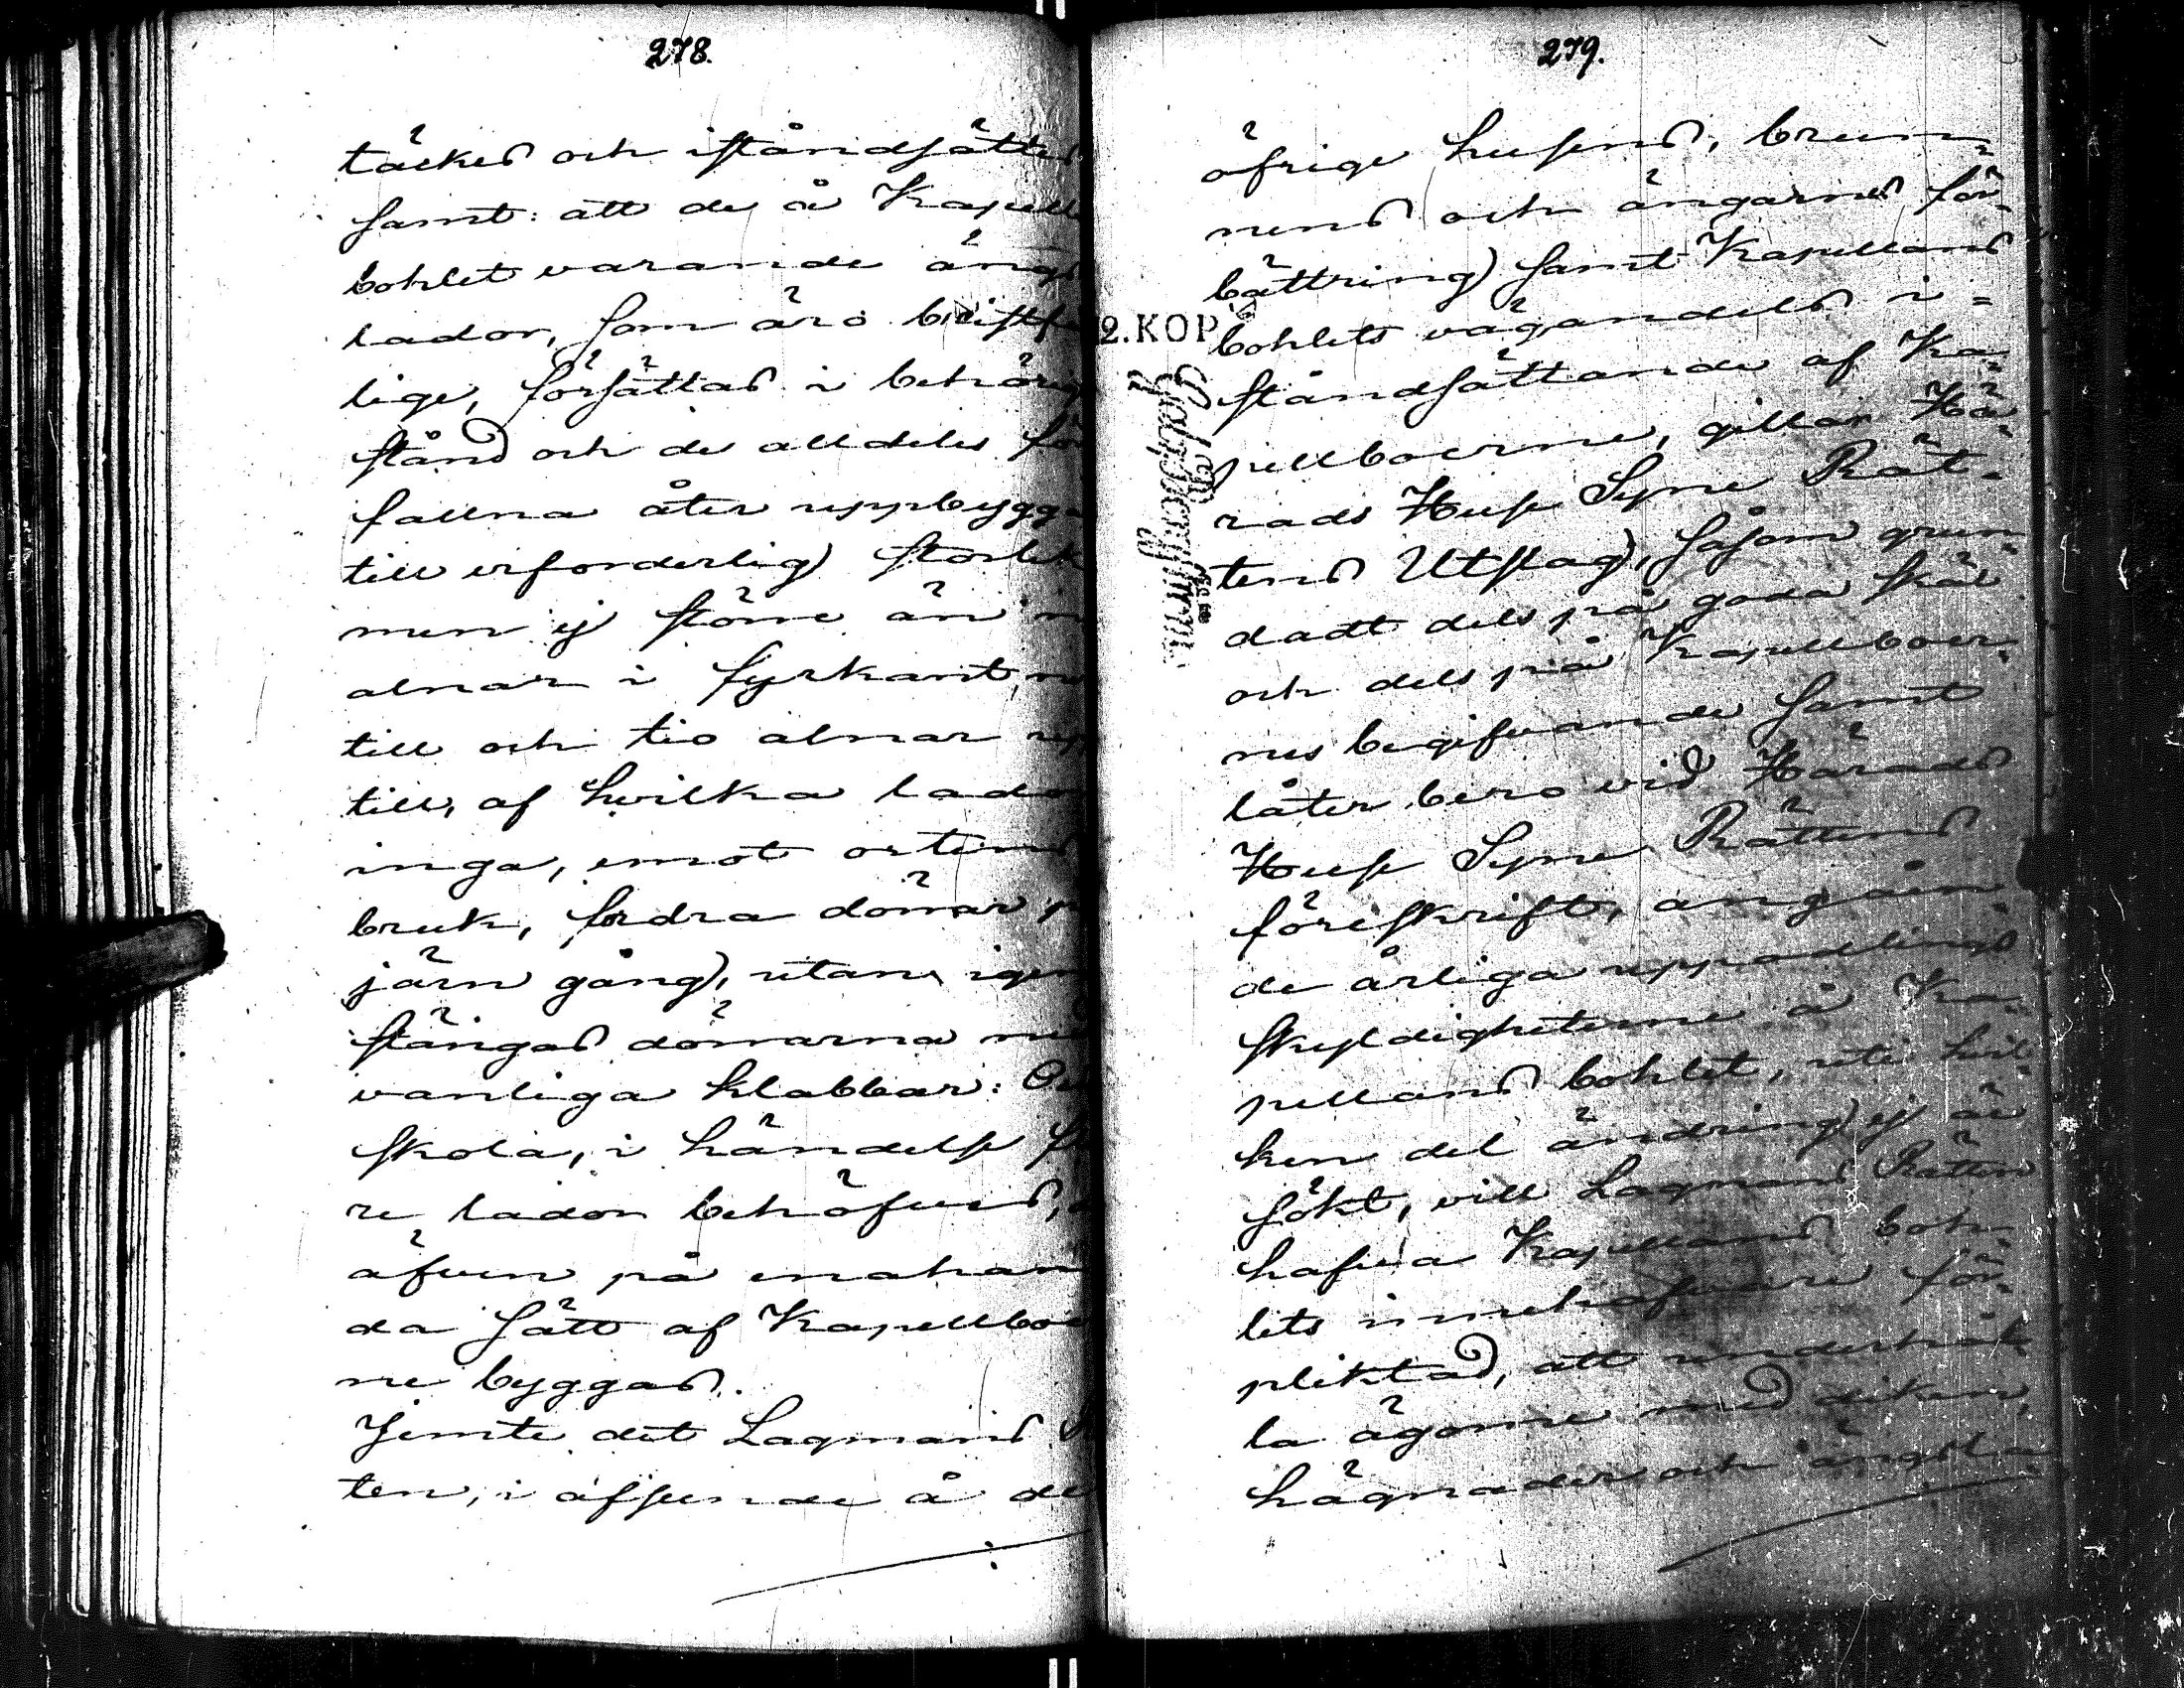 278.
täckes och iståndsättes
samt: att de å Kapell
bohlet varande ängs
lador, som äro bristfe
lige, försättas i behörig
stånd och de alldeles för
fallna åter uppbygga
till erforderlig storlek
men ej större än
alnar i fyrkant
till och tio alnar upp
till, af hvilka lador
inga, emot ortens
bruk, fordra dörrar på
järn gång, utan igen
stängas dörrarna med
vanliga klabbar:
skola, i händelse
re lador behöfves,
äfven på enahan
da sätt af Kapellboer
ne byggas.
Jemte det Lagmans
ten, i afseende å de
279.
öfrige husens, brun=
nens och ängarnes för=
bättring) samt Kapellans
bohlets vägandels i=
ståndsättande af Ka=
pellboerne, gillar Hä=
rads Huse Syne Rät=
tens Utslag, såsom grun=
dadt dels på goda skäl
och dels på Kapellboer=
nes begifvande samt
låter bero vid Härads
Huse Syne Rättens
föreskrift, angåen=
de årliga uppodlings
skyldigheterne å Ka=
pellans bohlet, uti hvil=
ken del ändring ej är
sökt, vill Lagmans Rätten
hafva Kapellans boh=
lets innehafvare för=
pliktad, att underhål=
la ägorne med diken,
hägnader och ängsla=
2.KOP